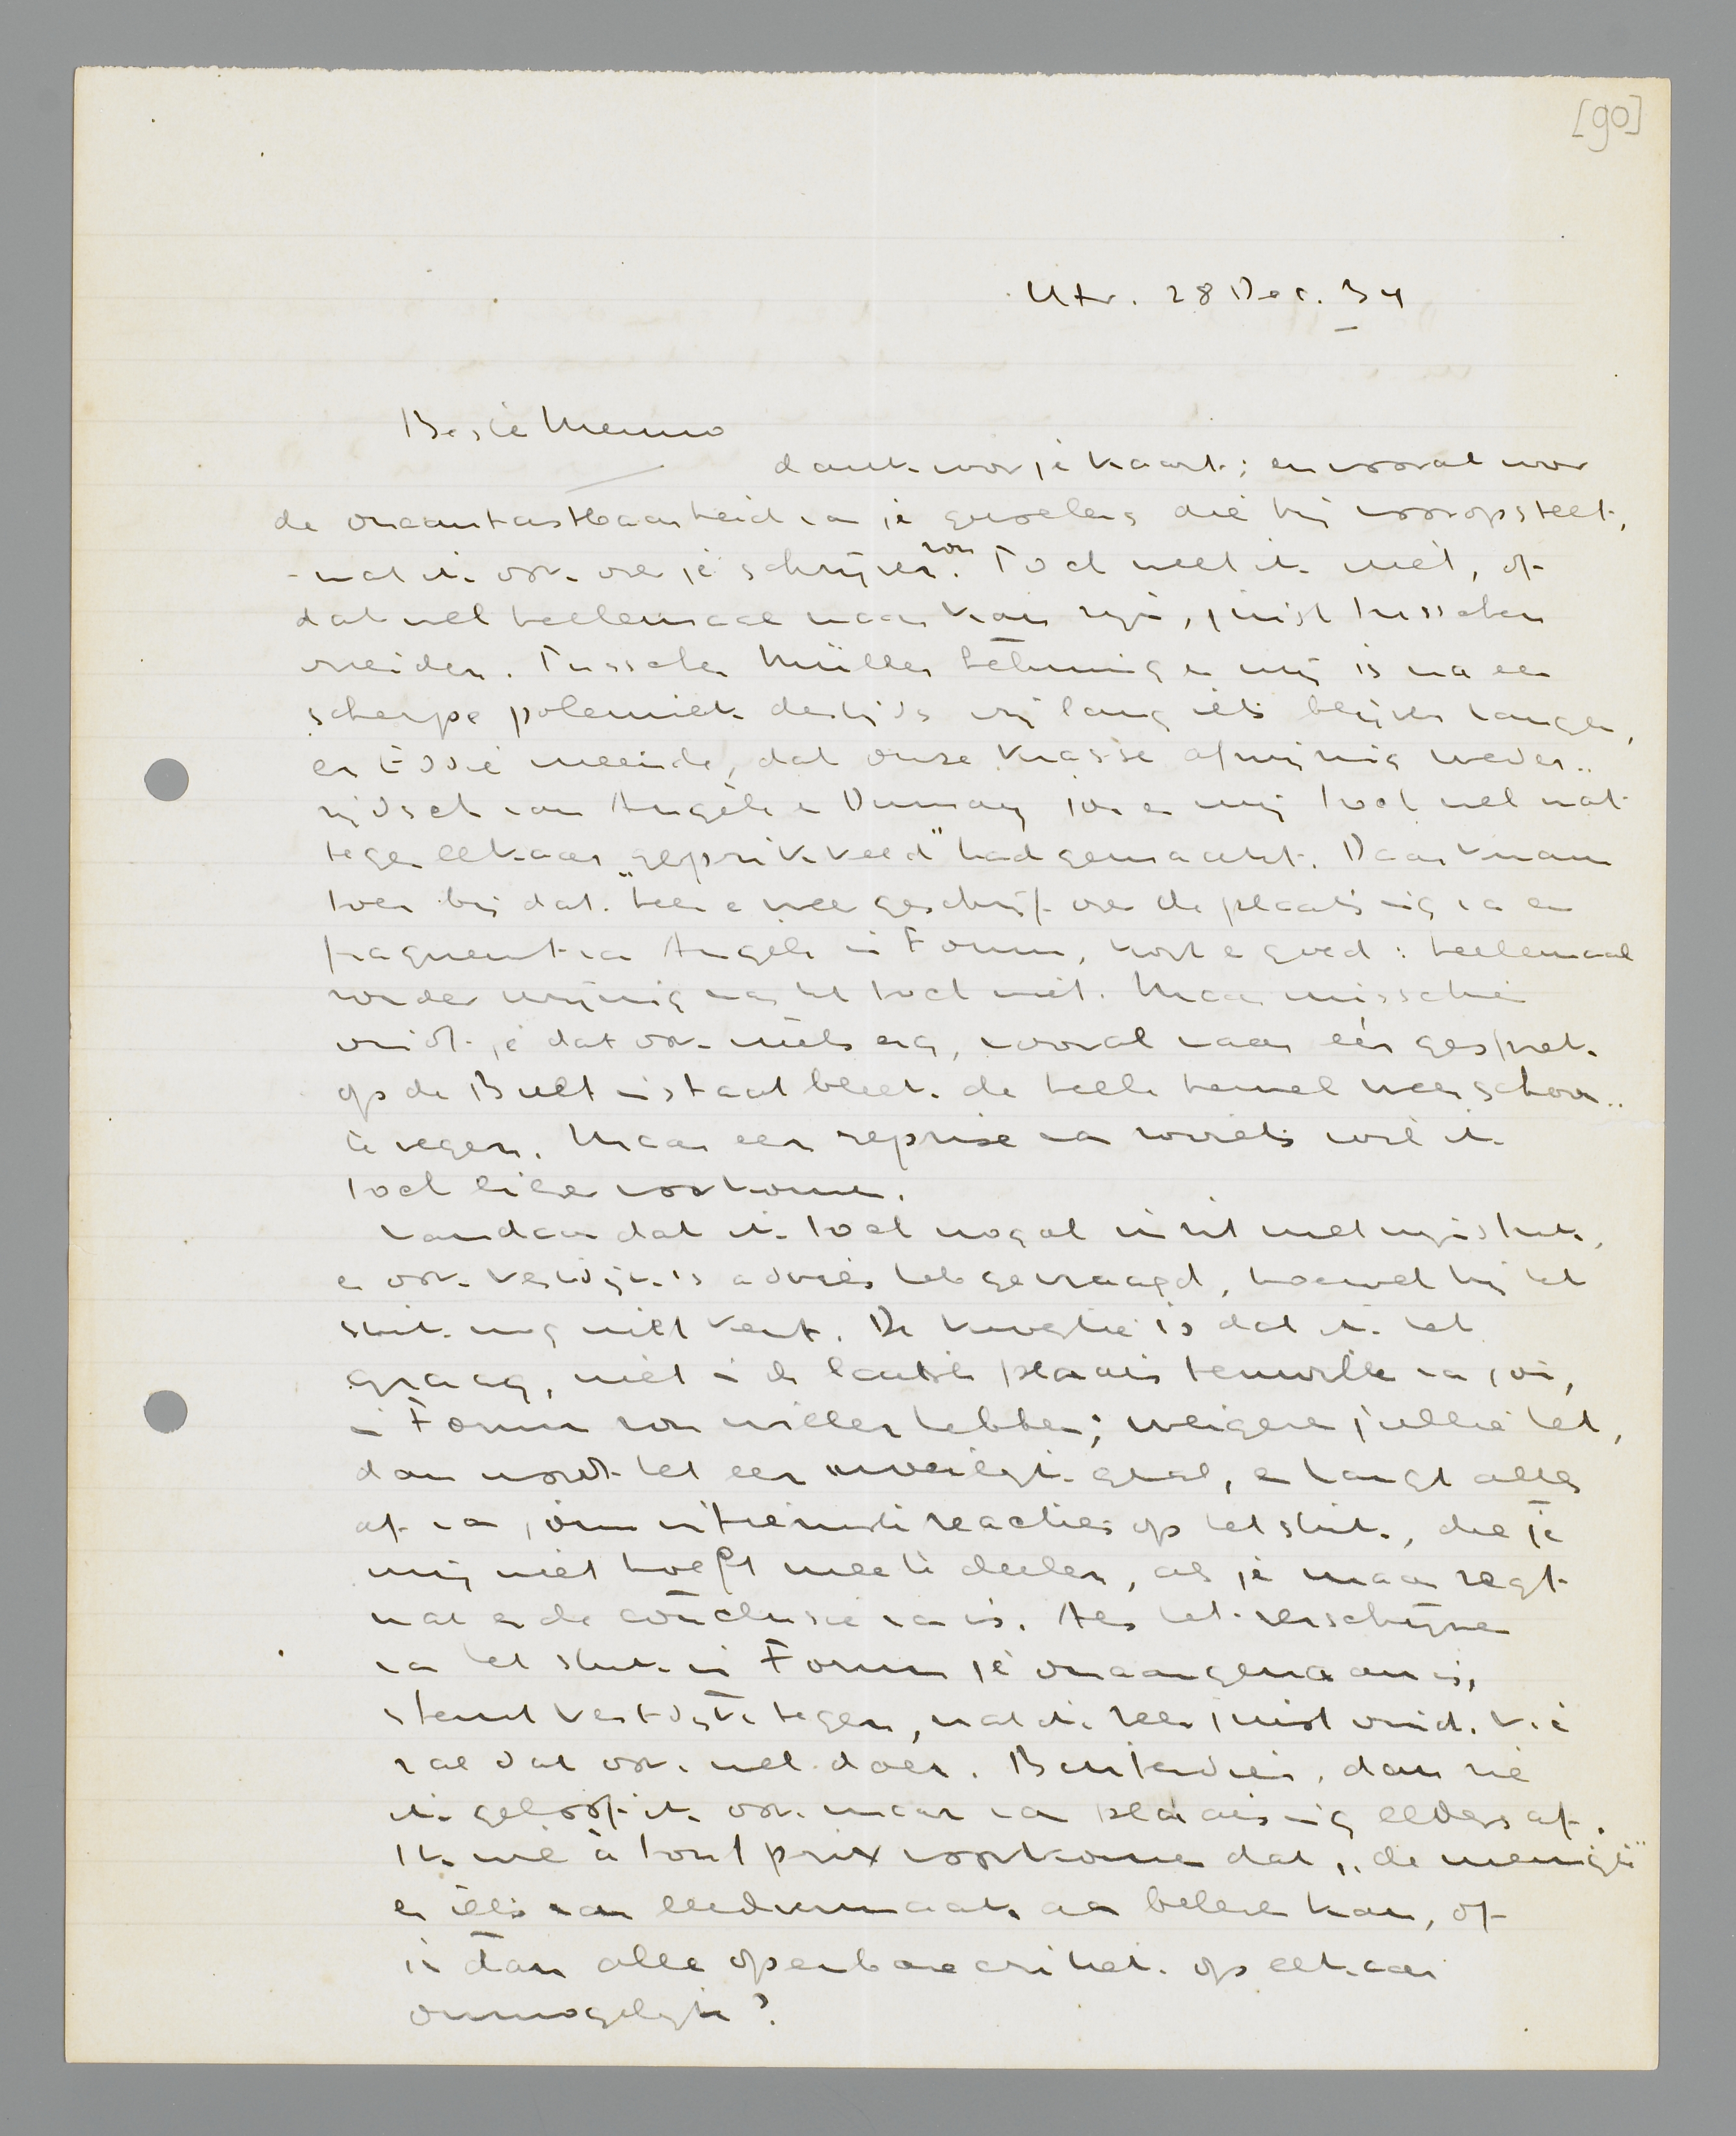 [90]
Utr. 28 Dec. 34
Beste Menno
dank voor je kaart; en vooral voor
de onaantastbaarheid van je gevoelens die hij vooropstelt,
wat ik ook over je schrijven zou. Toch weet ik niet, of
dat wel heelemaal waar kan zijn, juist tusschen
vrienden. Tusschen Müller Lehning en mij is na een
scherpe polemiek destijds vrij lang iets blijven hangen,
en Eddie meende, dat onze krasse afwijzing weder-
zijdsch van Angèle en Dumay jou en mij toch wel wat
tegen elkaar „geprikkeld" had gemaakt. Daar kwam
toen bij dat heen en weer geschrijf over de plaatsing van een
fragment van Angèle in Forum, kort en goed: heelemaal
zonder wrijving was het toch niet. Maar misschien
vindt je dat ook niets erg, vooral waar één gesprek
op de Bult in staat bleek de heele hemel weer schoon
te vegen. Maar een reprise van zooiets wil ik
toch liever voorkomen.
Vandaar dat ik toch nogal in zit met mijn stuk,
en ook Vestdijk's advies heb gevraagd, hoewel hij het
stuk nog niet kent. De kwestie is dat ik het
graag, niet in de laatste plaats terwille van jou,
in Forum zou willen hebben; weigeren jullie het,
dan wordt het een moeilijk geval, en hangt alles
af van jouw uiteindelijke reacties op het stuk, die je
mij niet hoeft mee te deelen, als je maar zegt
wat er de conclusie van is. Als het verschijnen
van het stuk in Forum je onaangenaam is,
stemt Vestdijk tegen, wat ik zeer juist vind. V.é
zal dat ook wel doen. Bovendien, dan zie
ik geloof ik ook maar van plaatsing elders af.
Ik wil à tout prix voorkomen dat „de menigte"
er iets van leedvermaak aan beleven kan, of
is dan alle openbare critiek op elkaar
onmogelijk?